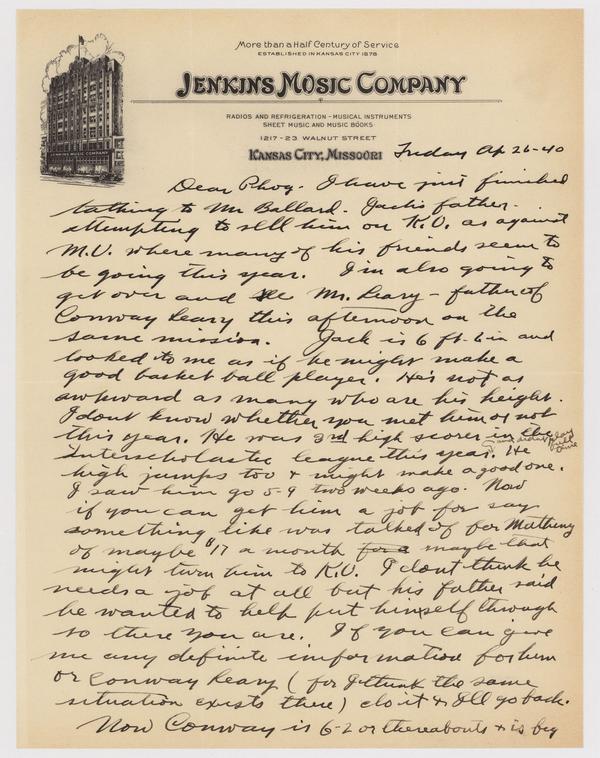 More than a Half Century of Service
ESTABLISHED IN KANSAS CITY 1878
JENKINS MUSIC COMPANY
RADIOS AND REFRIGERATION - MUSICAL INSTRUMENTS
SHEET MUSIC AND MUSIC BOOKS
1217-23 WALNUT STREET
KANSAS CITY, MISSOURI
JENKINS MUSIC COMPANY
Friday Ap 26-40
Dear Phog. I have just finished
talking to Mr Ballard. Jack's father.
attempting to sell him on K.U. as against
M.U. where many of his friends seem to
be going this year. I'm also going to
get over and see Mr. Leary - father of
Conway Leary this afternoon on the
same mission. Jack is 6 ft. 6 in and
looked to me as if he might make a
good basket ball player. He's not as
awkward as many who are his height.
I dont know whether you met him or not
this year. He was 3rd high scorer in the
Interscholastic league this year. He
and didnt play
full
time
high jumps too & might make a good one.
I saw him go 5-9 two weeks ago. Now
if you can get him a job for say
something like was talked of for Matheny
of maybe $17 a month for a maybe that
might turn him to K.U. I dont think he
needs a job at all but his father said
he wanted to help put himself through
so there you are. If you can give
me any definite information for him
or Conway Leary (for I think the same
situation exists there) do it & I'll go back.
Now Conway is 6-2 or thereabouts & is big